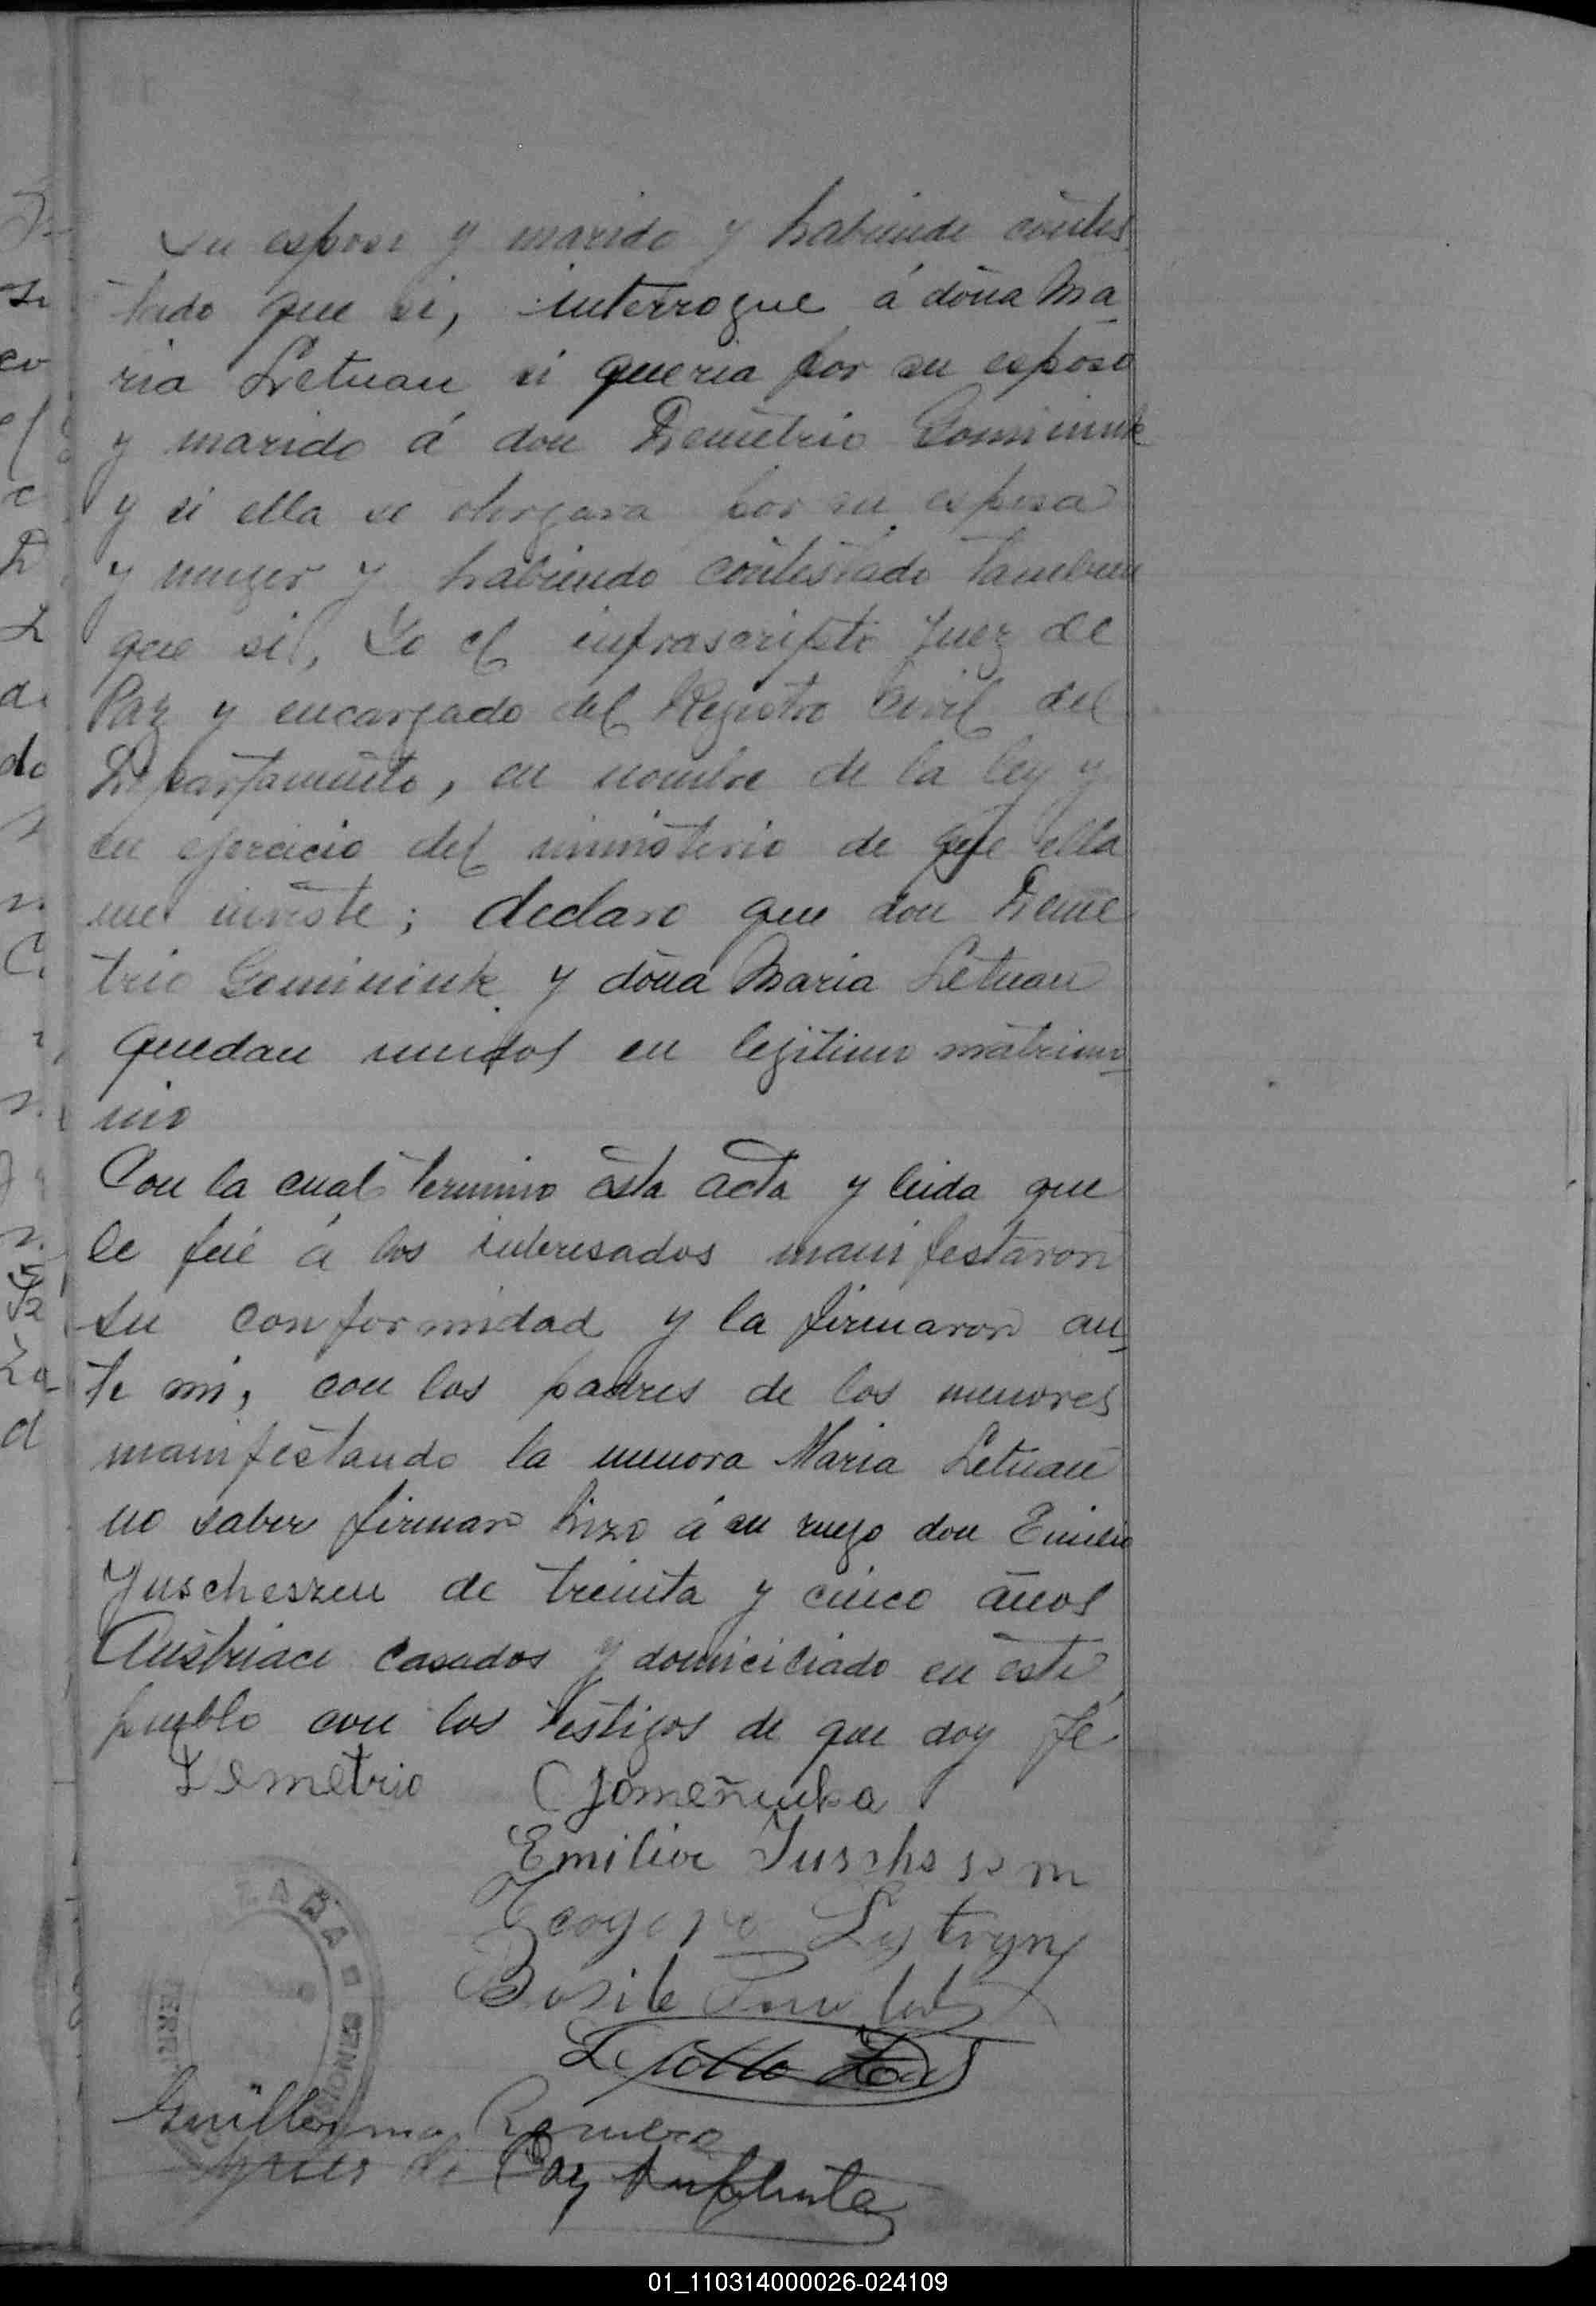 su esposo y marido y habiendo contes
tado que si, interrogue á doña Ma
ria Letuan si queria por su esposo
y marido á don Demetrio Gominiuk
y si ella se otorgara por su esposa
y muger y habiendo contestado tambien
que si, Yo el infrascripto Juez de
Paz y encargado del Registro Civil del
Departamento, en nombre de la ley y
en ejercicio del ministerio de que ella
me inviste; declaro que don Deme
trio Gominiuk y doña Maria Letuan
quedan unidos en legitimo matrimo
nio
Con la cual termino esta acta y leida que
le fué á los interesados manifestaron
su conformidad y la firmaron an
te mi, con los padres de los menores
manifestando la menora Maria Letuan
no saber firmar hizo á su ruego don Emilio
Yuscheszen de treinta y cinco años
Austriaco casados y domiciliado en este
pueblo con los testigos de que doy fé
Demetrio Gomeñiuka
Emilior
Lytvyn
Basile
Guillermo Romero
Juez de Paz Suplente
01_110314000026-024109